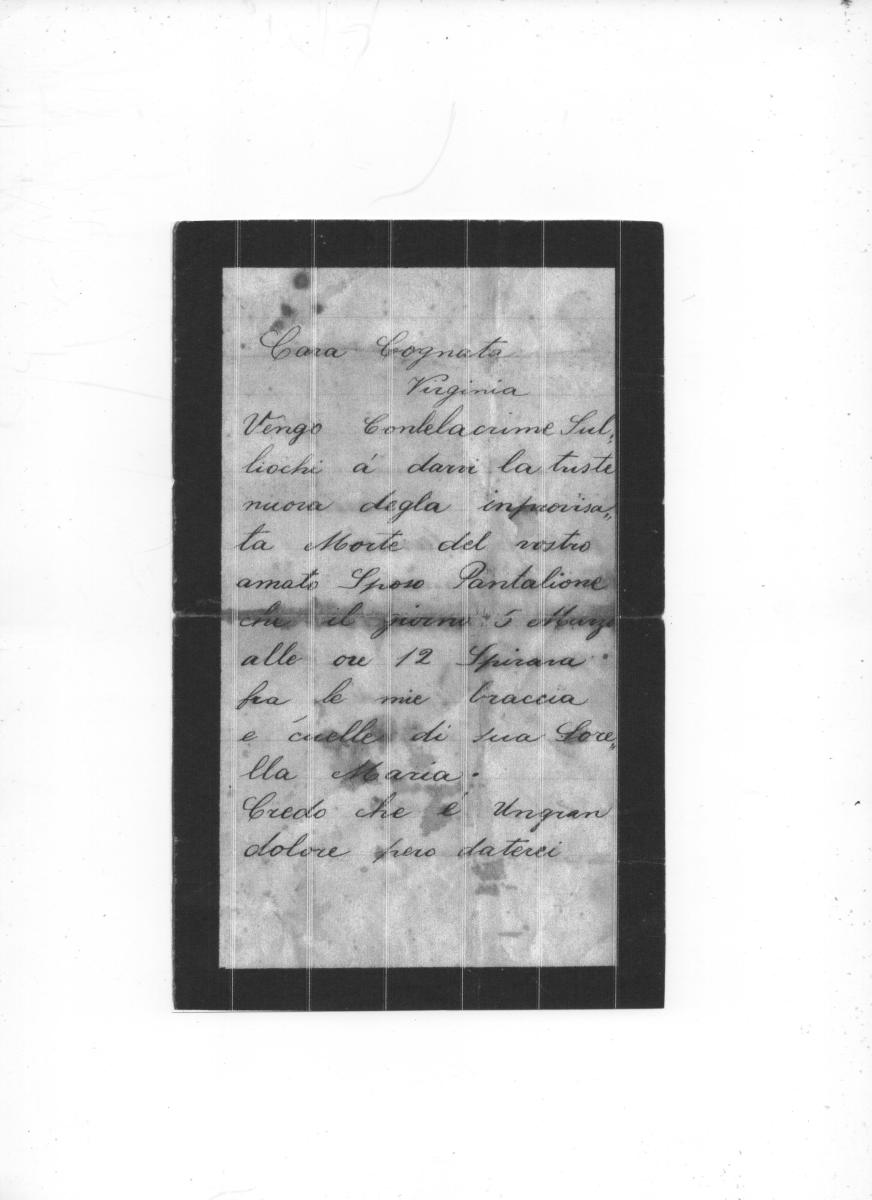 Cara Cognata
Virginia
Vengo Contelacrime Sul„
liochi á darvi la triste
nuova degla inprovisa„
ta Morte del vostro
amato Sposo Pantalione
che il giorno 5 Marzo
alle ore 12 Spirava
fra le mie braccia
e cuelle di sua Sore„
lla Maria.
Credo che é Ungran
dolore pero daterci